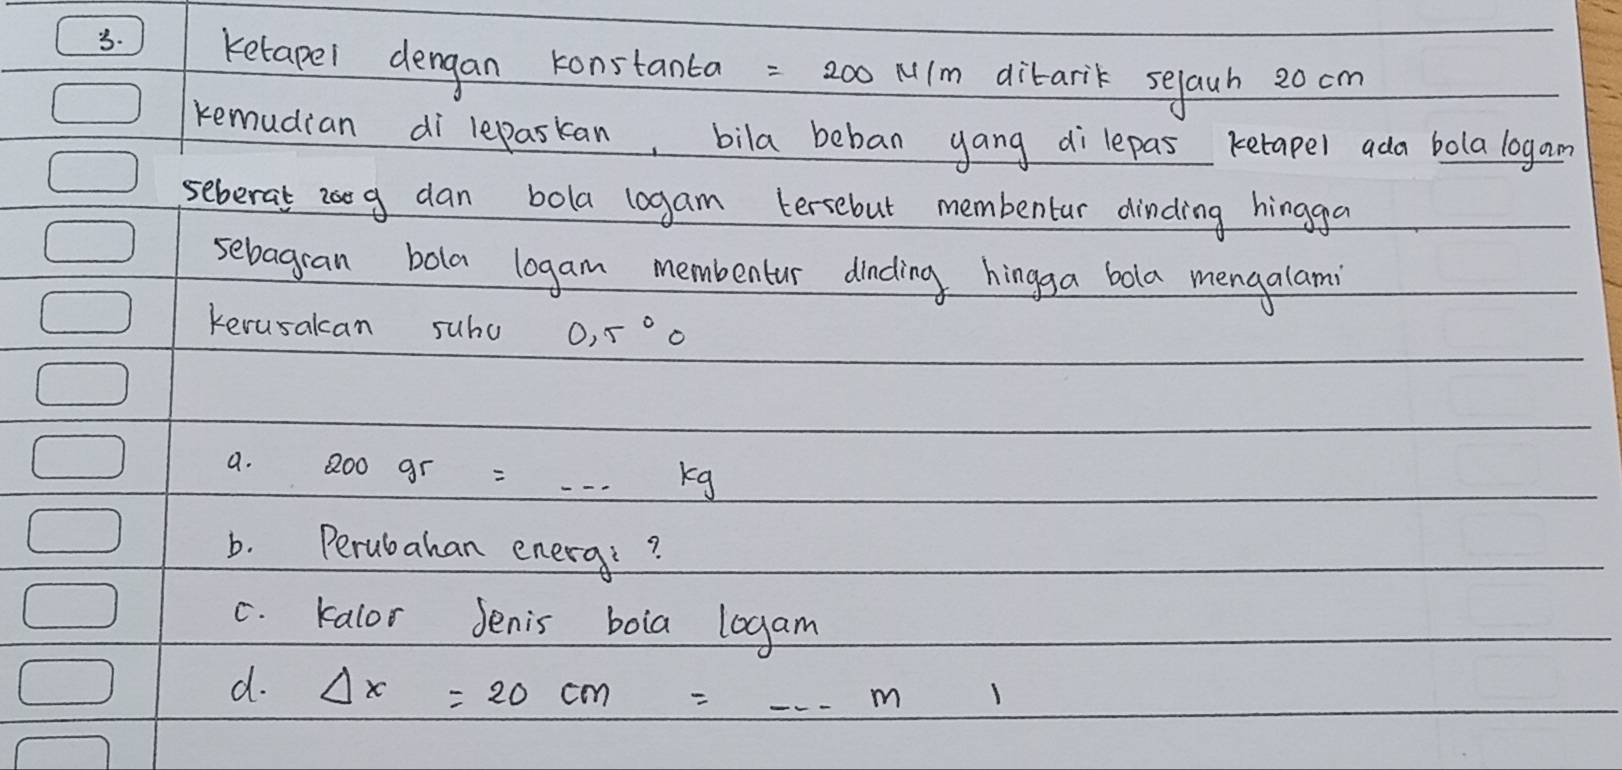 3. Ketapel dengan konstanta = 200 N/m ditarik sejauh 20 cm
kemudian di lepaskan, bila beban yang di lepas ketapel ada bola logam
seberat 200 g dan bola logam tersebut membentur dinding hingga
sebagian bola logam membentur dinding hingga bola mengalami
kerusakan suhu 0,5°0
a. 200 gr = --- kg
b. Perubahan energi ?
c. Kalor Jenis bola logam
d. Δx = 20 cm = --- m